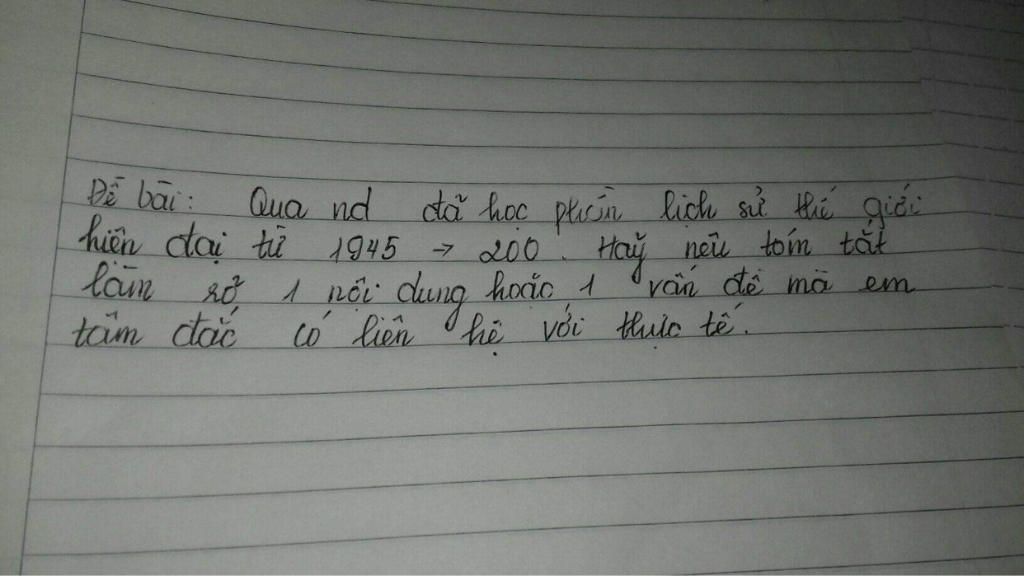 Đề bài: Qua nd đã học phần lịch sử thế giới
hiện đại từ 1945 → 200. Hãy nêu tóm tắt
làm rõ 1 nội dung hoặc 1 vấn đề mà em
tâm đắc có liên hệ với thực tế.